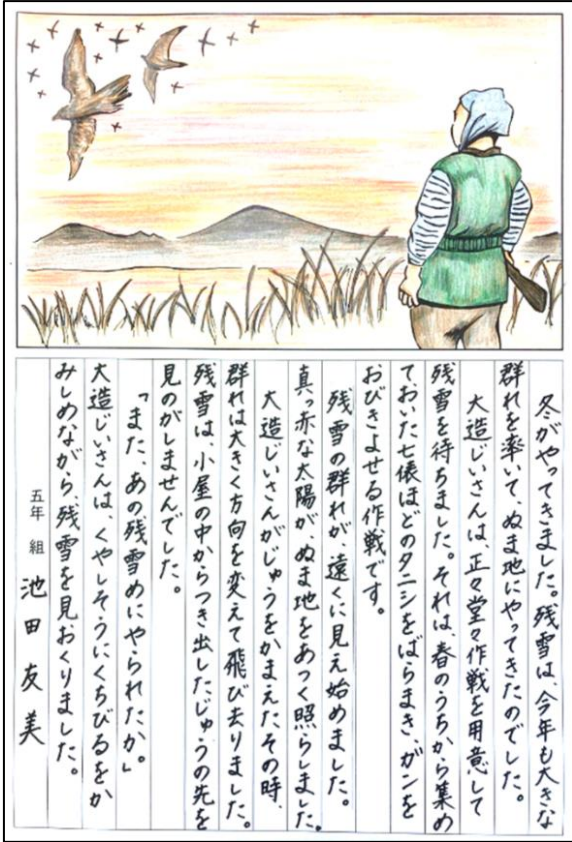 冬がやってきました。残雪は、今年も大きな
群れを率いて、ぬま地にやってきたのでした。
大造じいさんは、正々堂々作戦を用意して
残雪を待ちました。それは、春のうちから集め
ておいた七俵ほどのタニシをばらまき、ガンを
おびきよせる作戦です。
残雪の群れが、遠くに見え始めました。
真っ赤な太陽が、ぬま地をあつく照らしました。
大造じいさんがじゅうをかまえたその時、
群れは大きく方向を変えて飛び去りました。
残雪は、小屋の中からつき出したじゅうの先を
見のがしませんでした。
「また、あの残雪めにやられたか。」
大造じいさんは、くやしそうにくちびるをか
みしめながら、残雪を見おくりました。
五年 組 池田友美